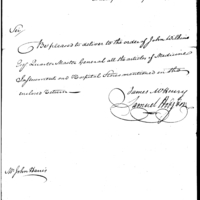 Sir
Be pleased to deliver to the order of John Wilkins
Esq Quarter Master General all the articles of Medicines
Instruments and Hospital Stores mentioned in the
enclosed Return.
James McHenry
Samuel Hodgdon
Mr John Harris